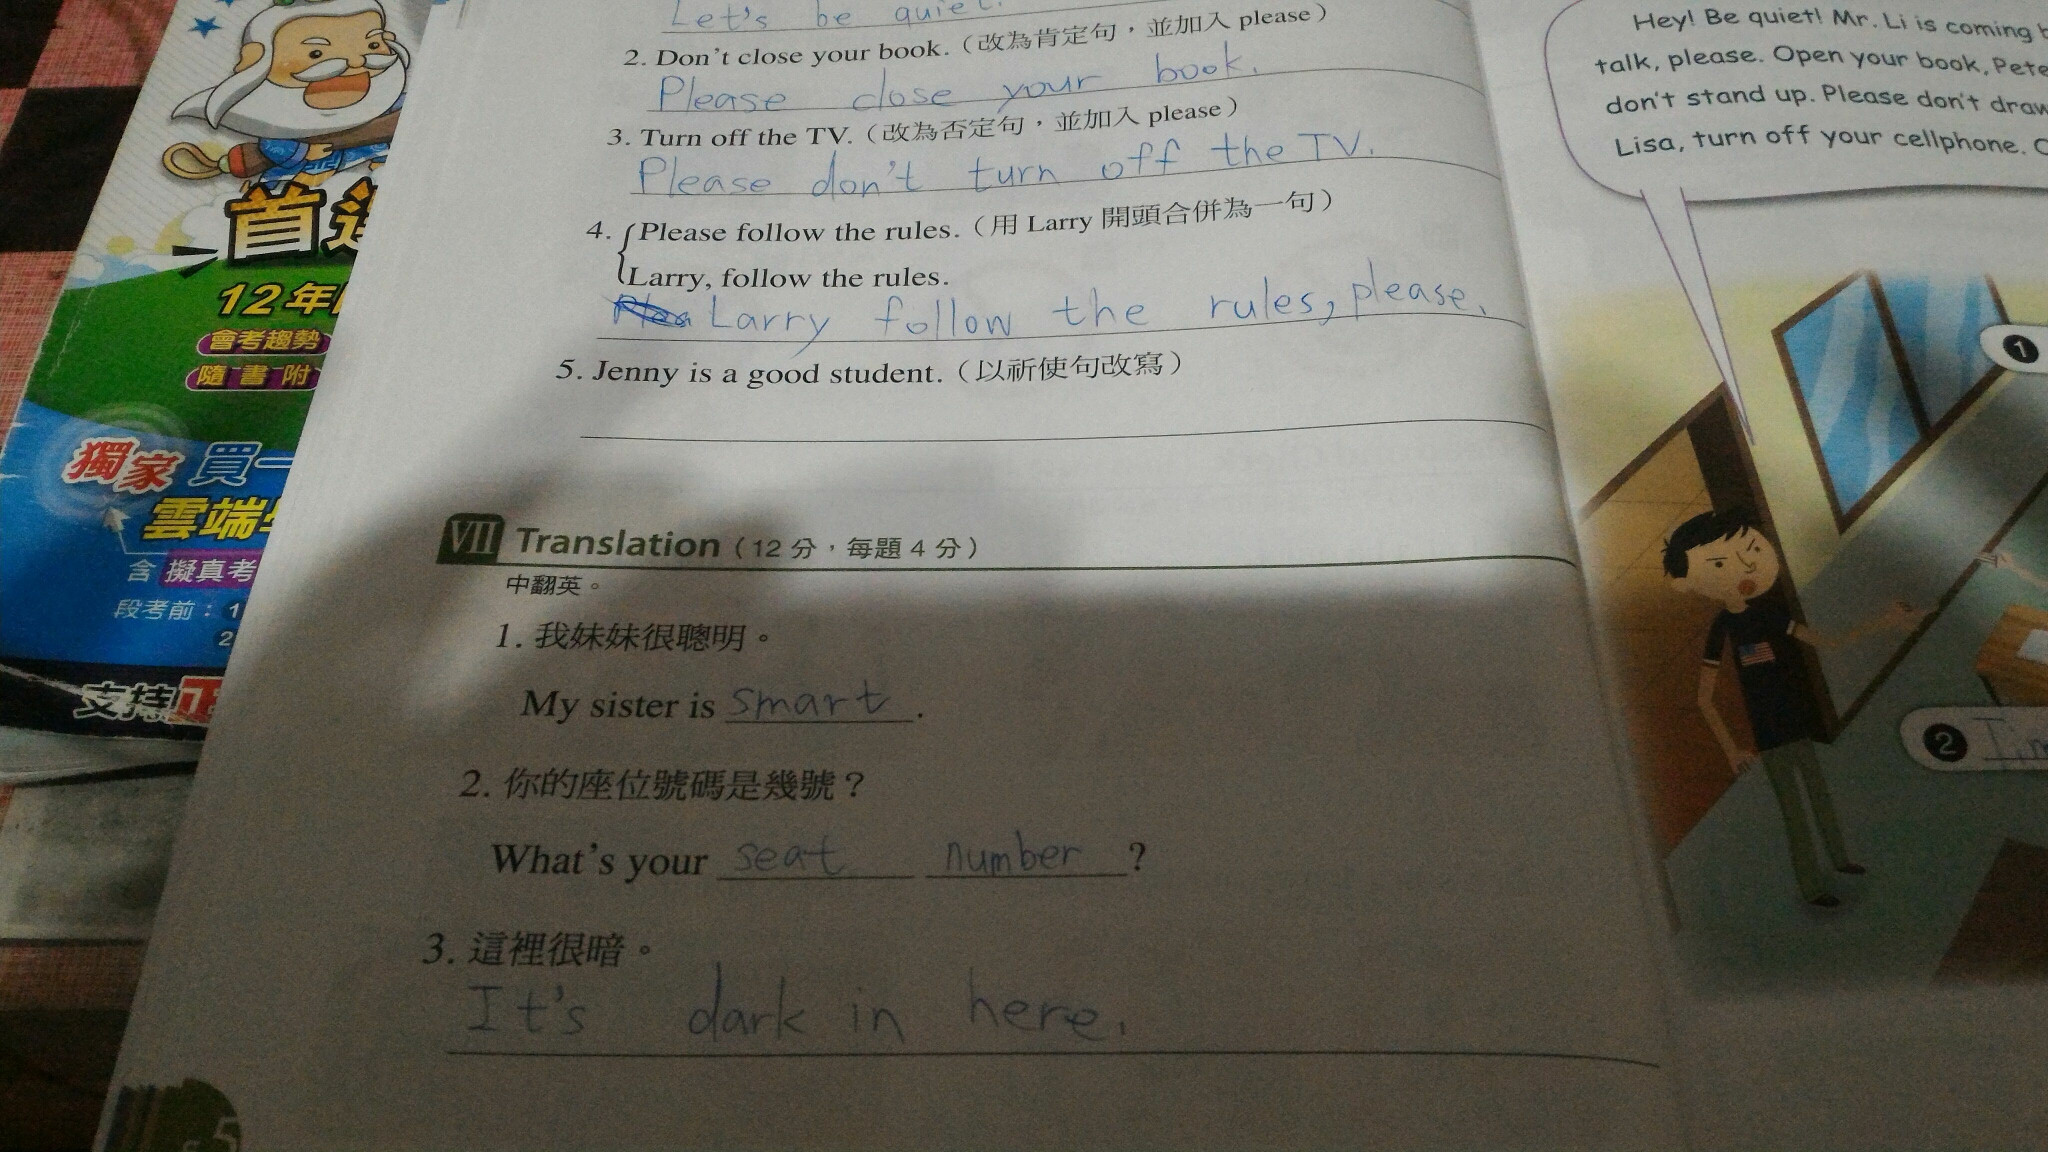 首
12年
會考趨勢
隨書附
獨家 買一
雲端
含 擬真考
段考前：1
2
支持正
Let's be quiet.
2. Don't close your book.（改為肯定句，並加入 please）
Please close your book.
3. Turn off the TV.（改為否定句，並加入 please）
Please don't turn off the TV.
4. Please follow the rules.（用 Larry 開頭合併為一句）
Larry, follow the rules.
Larry follow the rules, please.
5. Jenny is a good student.（以祈使句改寫）
VII Translation（12 分，每題 4 分）
中翻英。
1. 我妹妹很聰明。
My sister is smart.
2. 你的座位號碼是幾號？
What's your seat number?
3. 這裡很暗。
It's dark in here.
5
Hey! Be quiet! Mr. Li is coming
talk, please. Open your book, Pete
don't stand up. Please don't draw
Lisa, turn off your cellphone.
1
2 Tim